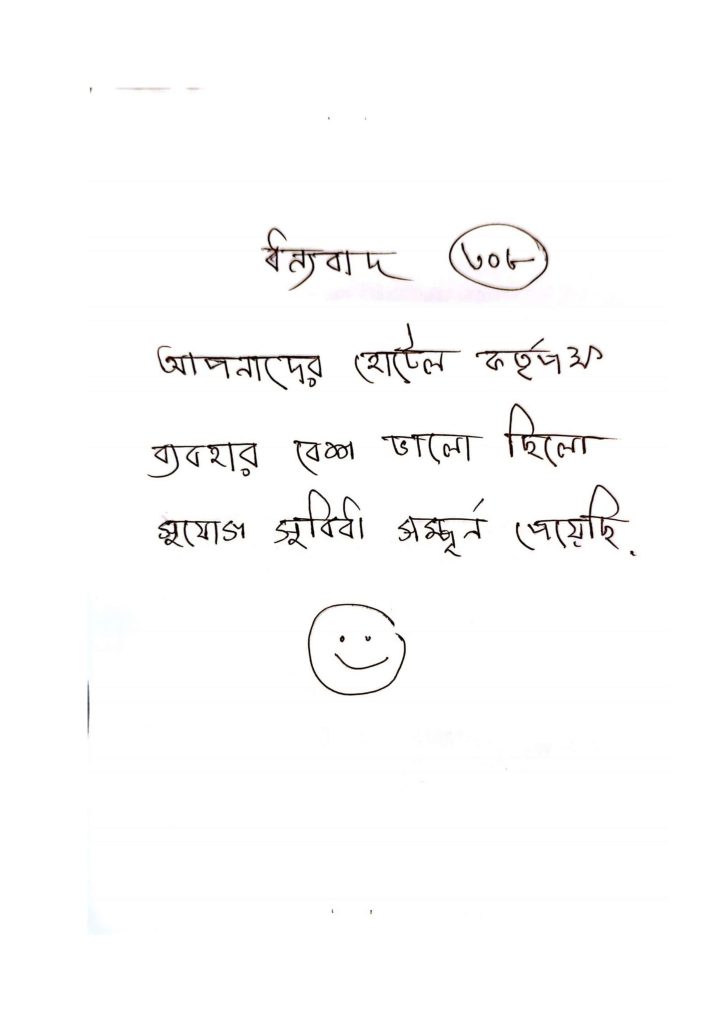 ধন্যবাদ ৩০৮
আপনাদের হোটেল কর্তৃপক্ষ
ব্যবহার বেশ ভালো ছিলো
সুযোগ সুবিধা সম্পূর্ন পেয়েছি.